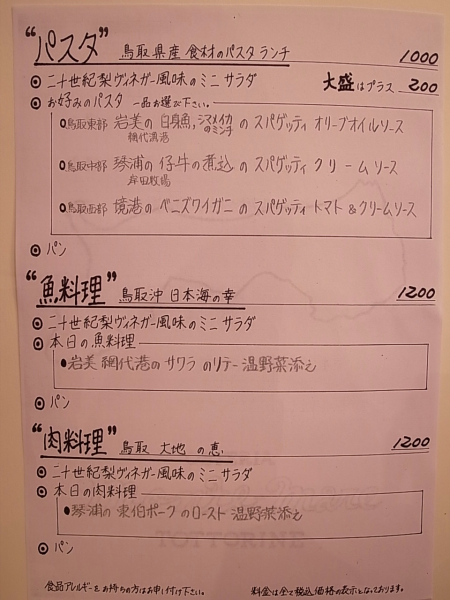 “パスタ” 鳥取県産 食材のパスタランチ 1000
◎ 二十世紀梨ヴィネガー風味のミニサラダ 大盛はプラス 200
◎ お好みのパスタ 一品お選び下さい。
○鳥取東部 岩美の白身魚,シマメイカのミンチ のスパゲッティ オリーブオイルソース
網代漁港
○鳥取中部 琴浦の仔牛の煮込のスパゲッティ クリームソース
○鳥取西部 境港のベニズワイガニのスパゲッティ トマト&クリームソース
◎ パン
“魚料理” 鳥取沖 日本海の幸 1200
◎ 二十世紀梨ヴィネガー風味のミニサラダ
◎ 本日の魚料理
●岩美 網代港のサワラ のソテー 温野菜添え
◎ パン
“肉料理” 鳥取 大地の恵 1200
◎ 二十世紀梨ヴィネガー風味のミニサラダ
◎ 本日の肉料理
●琴浦の東伯ポークのロースト 温野菜添え
TOTTORINE
◎ パン
食品アレルギーをお持ちの方はお申し付け下さい。 料金は全て税込価格の表示となっております。